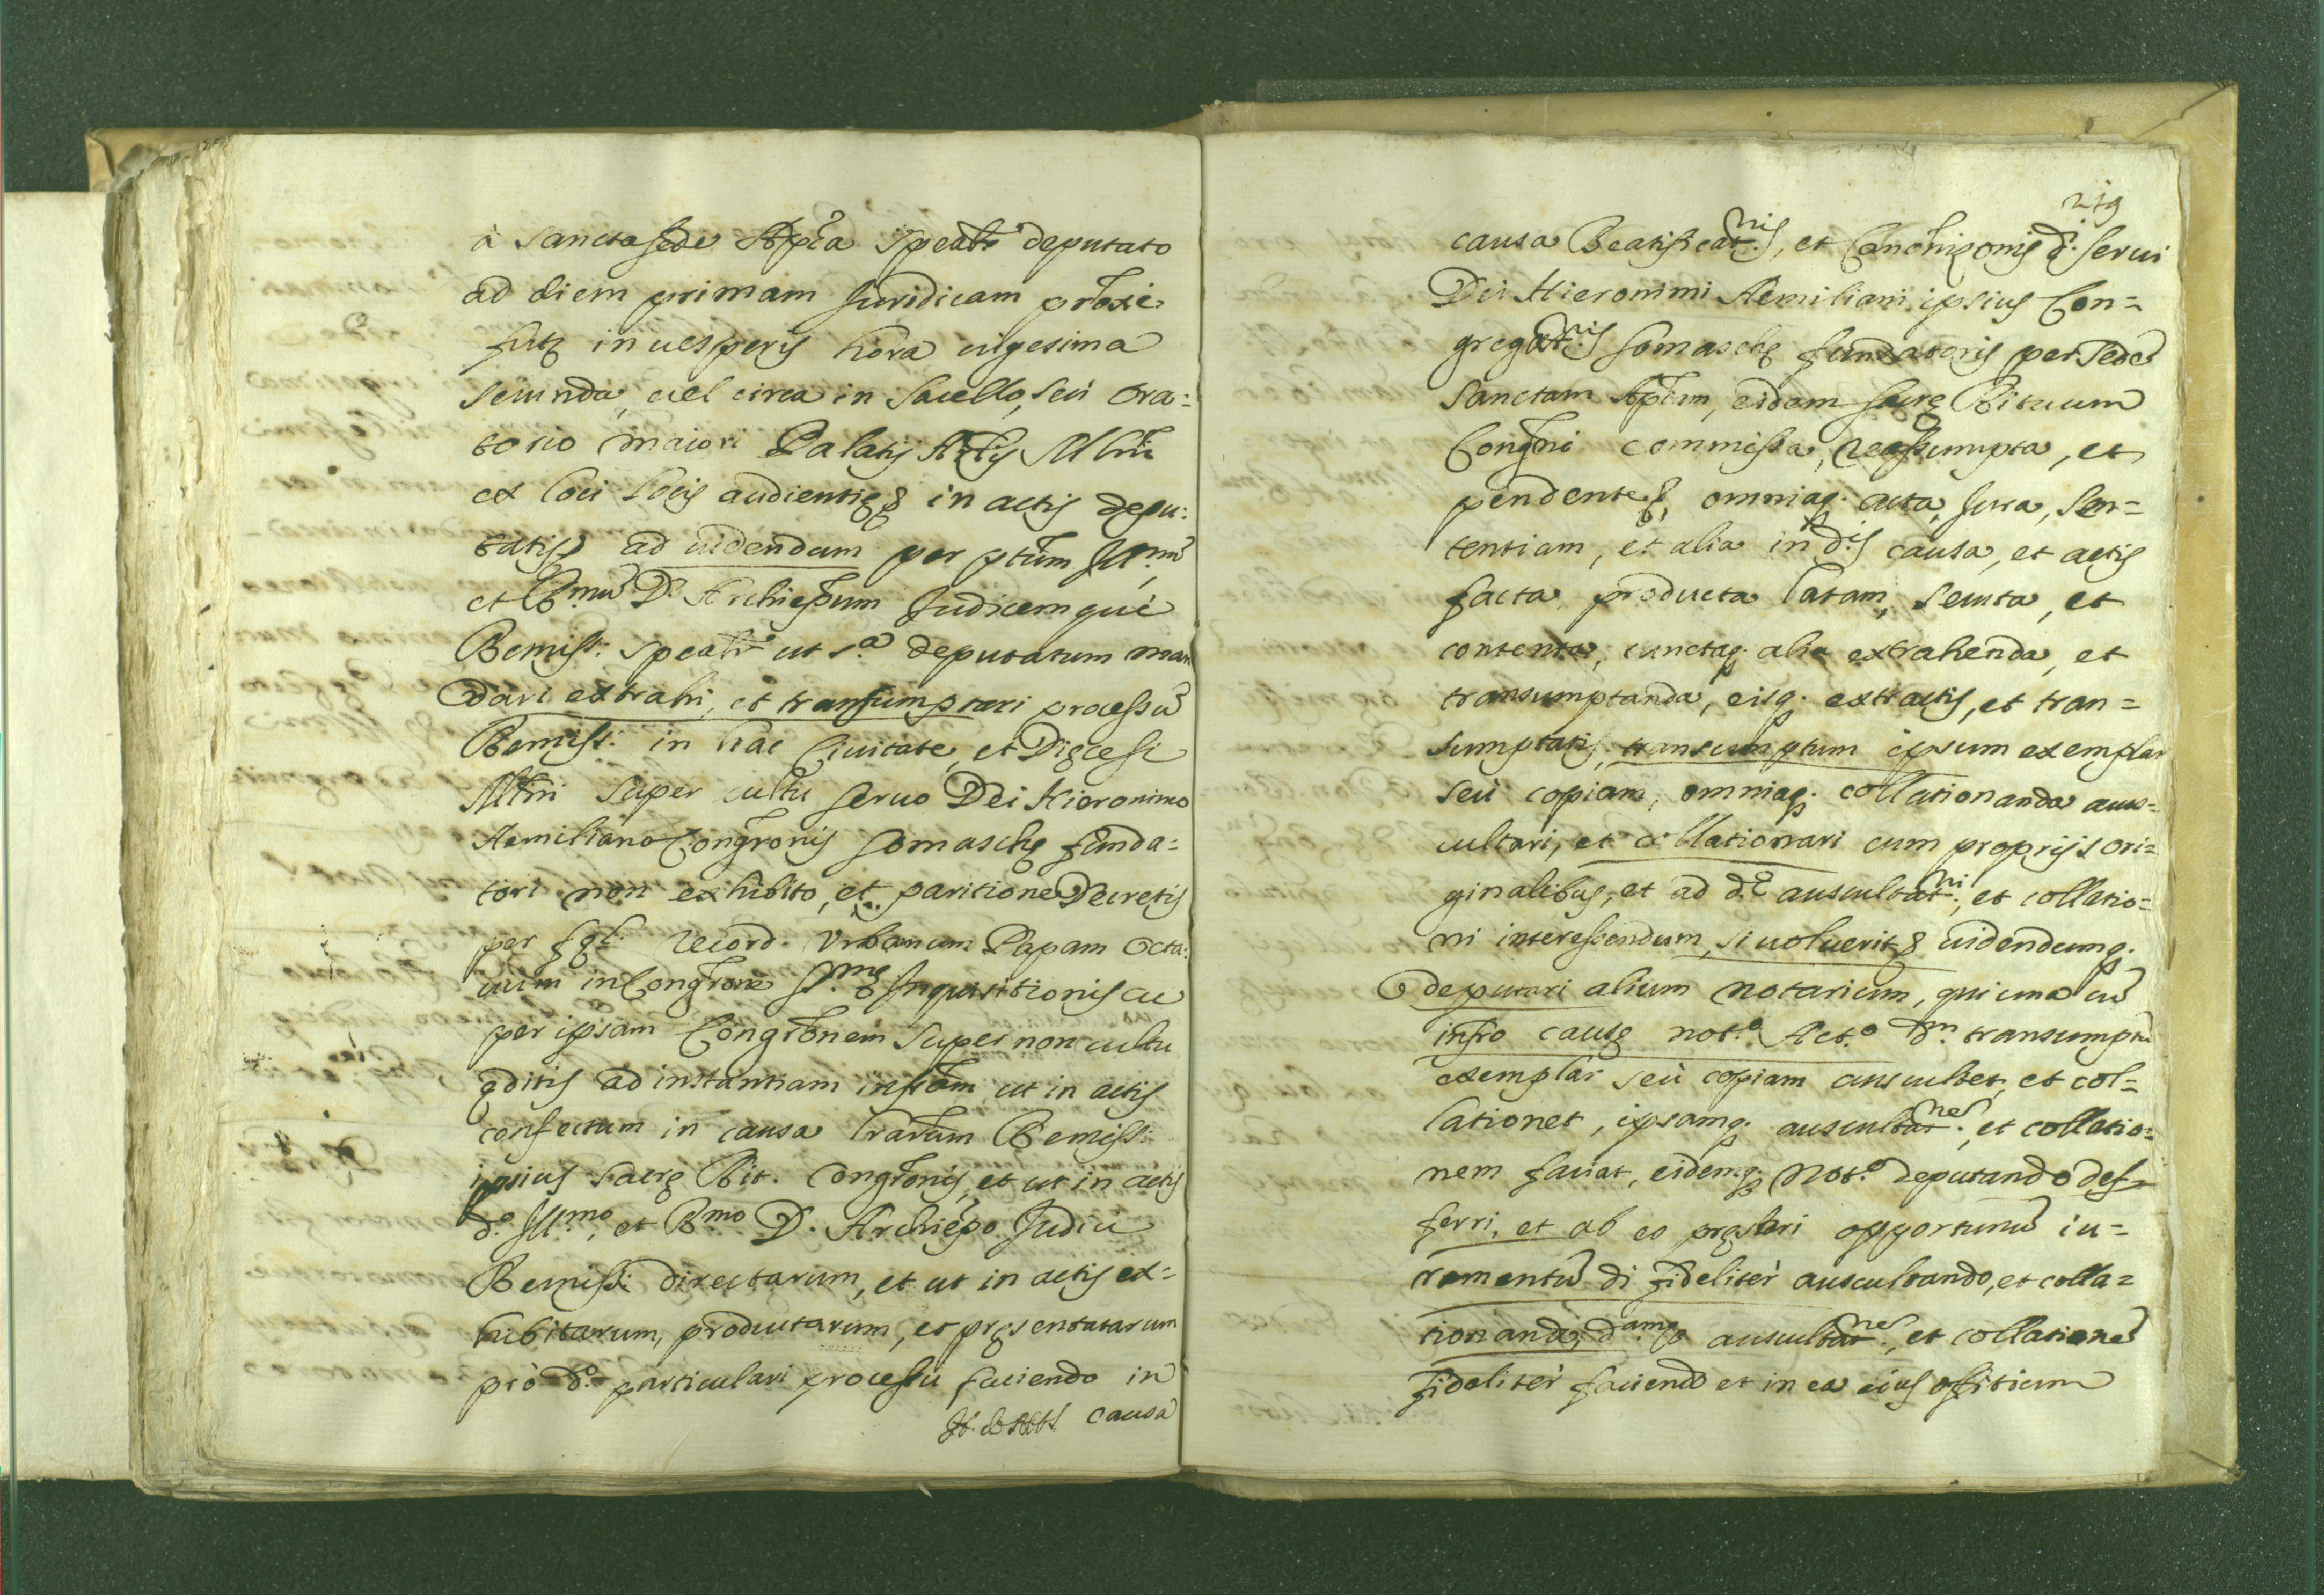 à Sancta sede Ap͞ca speāłr deputato
ad diem primam Juridicam prōxe
fut͞ę in uesperis hora uigesima
secunda, uel circa in Sacello, seù ora=
torio maiori Palatij Ar͞lis Mlni
et loci locis audientię & in actis depu:
tatis ad uidendum per p͞tum Ill.mũ,
et R.mũ D. Archiep͞um Judicemquè
Remiss: speāłr ut s.a deputatum man
dari extrahi, et transumptari processũ
Remiss: in hac Ciuitate, et Dięcesi
Mlni super cultu seruo Dei Hieronimo
Aemiliano Congr͞onis Somaschę funda=
tori non exhibito, et paritione Decretis
per fęl. record. Vrbanum Papam Octa:
uum in Congr͞one S.mę Inquisitionis ac
per ipsam Congr͞onem super non cultu
ęditis ad instantiam inst͞em, ut in actis
confectum in causa l͞rarum Remiss:
ipsius Sacrę Rit. Congr͞onis, et ut in actis
d.o Ill.mo, et R.mo D. Archiep͞o Judici
Remiss: directarum, et ut in actis ex=
hibitarum, productarum, et pręsentatarum
prò d.o particulari processu faciendo in
causa
219
causa Beatificat.nis, et Can͞onizonis d.i serui
Dei Hieronimi Aemiliani ipsius Con=
gregat.nis Somaschę fundatoris per Sedē
Sanctam Ap͞lcam, eidem Sacrę Rituum
Congr͞ni commissa, reassumpta, et
pendente &, omniaq. acta, Jura, Sen=
tentiam, et alia in d.is causa, et actis
facta, producta, latam, secuta, et
contenta, cunctaq. alia extrahenda, et
transumptanda, eisq. extractis, et tran=
sumptatis, transumptum ipsum exemplar
seù copiam, omniaq. collationanda aus=
cultari, et collationari cum proprijs ori=
ginalibus, et ad d.ē auscultat.ni, et collatio=
ni interessendum, si uoluerit & uidendumq.
deputari alium notarium, qui una cũ
inf͞ro causę not.o Act.o d.m transumptũ
exemplar seù copiam auscultet, et col=
lationet, ipsamq. auscultat.nes, et collatio=
nem faciat, eidemq. Not.o deputando def=
ferri, et ab eo pręstari opportunũ iu=
ramentũ di fideliter auscultando, et colla=
tionando, d.amq. auscultat.nē, et collationē
fideliter faciendo et in ea eius offitium